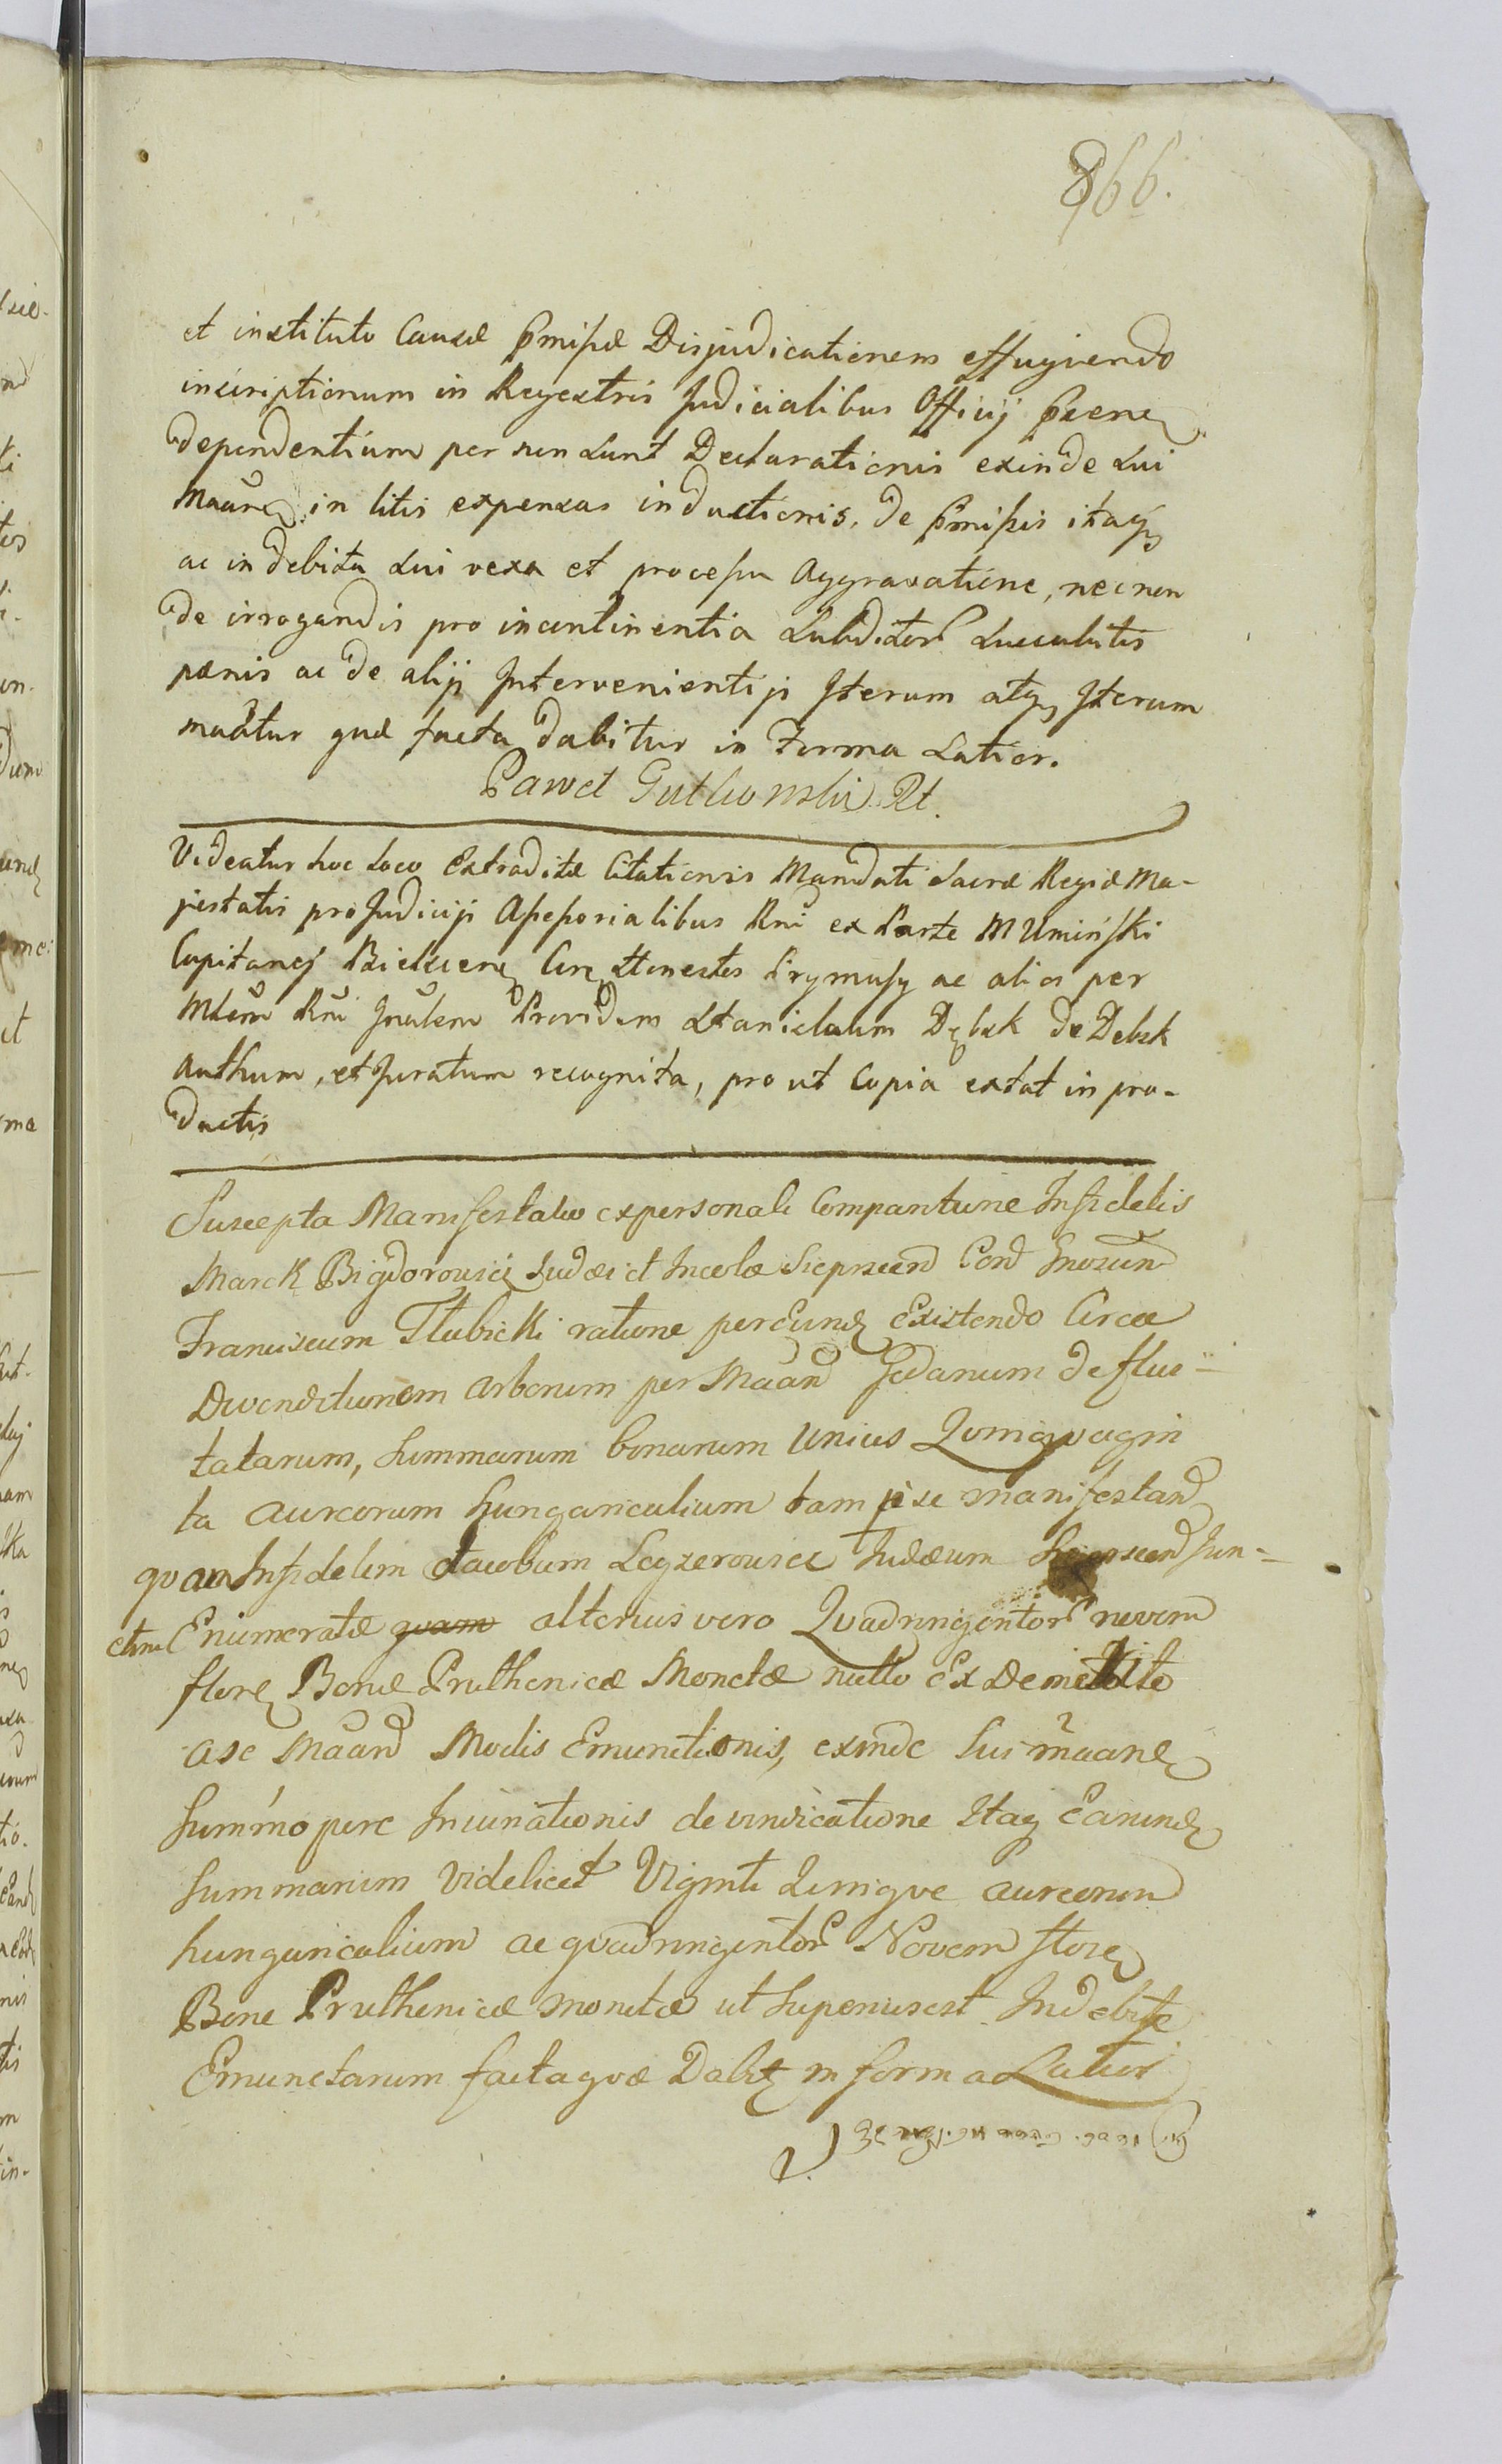 866.
et instituto Causæ pmissæ Disjudicationem effugiendo
inscriptionum in Regestris Judicialibus Officij psene
dependentium per sen sunt Declarationis exinde sui
Maane in litis expensas inductionis. De pmissis itaq
ac indebita sui vexa et processu Aggravatione, necnon
de irrogandis pro incontinentia Subditor succubitis
pænis ac de alijs Intervenientijs Iterum atq Iterum
maatur quæ facta dabitur in Forma Latior.
Paweł Gutkowski Rt.
Videatur hoc loco Extraditæ Citationis Mandati Sacræ Regiæ Ma-
jestatis pro Judicijs Assessorialibus Rni ex Parte M Umiński
Capitanej Bielscen Con Honestos Prymussy ac alios per
Mtem Rni Gnalem Providum Stanislaum Dębsk de Debsk
authum, et Juratum recognita, prout Copia extat in pro-
ductis
Suscepta Manifestatio ex personali Comparitione Infidelis
Marck Bigdorowicz Judæi et Incolæ Sieprscen Con Gnosum
Franciscum Tłubicki ratione per Eund Existendo Circa
Divenditionem arborum per Maand Gedanum deflui-
tatarum, Summarum binarum Unius Qvinqvagin
ta aureorum hungaricalium tam p se manifestand
quam Infidelem Jacobum Leyzerowicz Judæum Sieprscen Jun-
ctim Enumeratæ quam alterius vero Qvadringentor novem
floren Bonæ Pruthenicæ Monetæ nullo Ex Demerito
a se Maand Modis Emunctionis, exinde Sui maane
Summopere Iniurationis de vindicatione Itaq Earund
Summarum Videlicet Viginti Qvinqve aureorum
hungaricalium ac qvadringentor Novem floren
Bone Pruthenicæ Monetæ ut Superius est Indebite
Emunctarum facta qvæ Dabit in forma Latiori